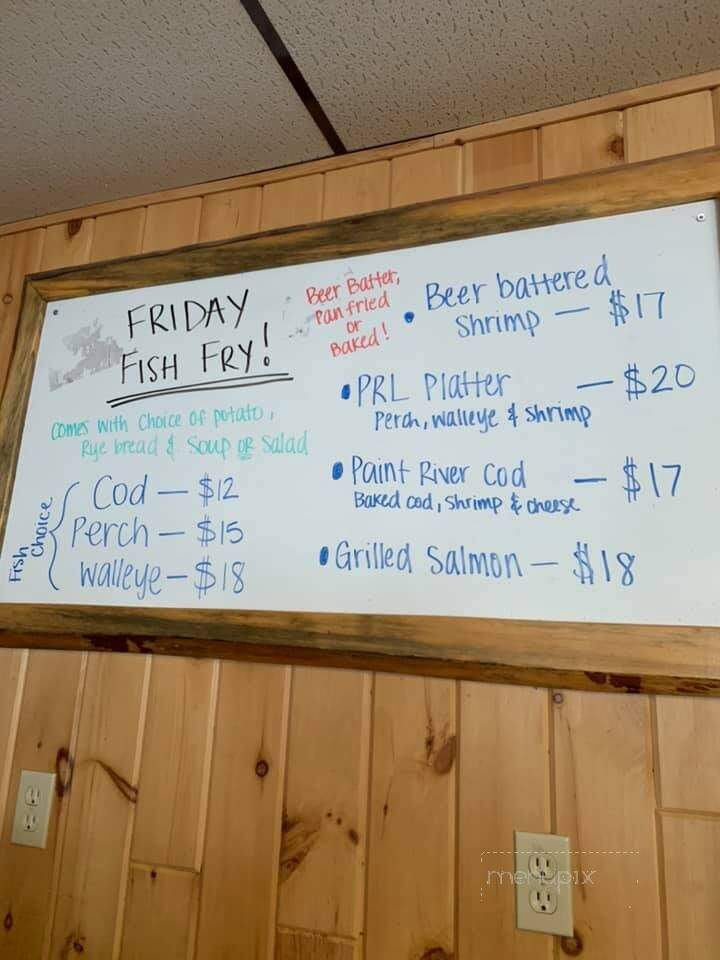 FRIDAY
FISH FRY!
Comes with choice of potato,
Rye bread & Soup OR Salad
Fish Choice
Cod — $12
Perch — $15
Walleye — $18
Beer Batter,
Pan fried
or
Baked!
• Beer battered
Shrimp — $17
• PRL Platter — $20
Perch, Walleye & Shrimp
• Paint River Cod — $17
Baked cod, Shrimp & cheese
• Grilled Salmon — $18
menupix